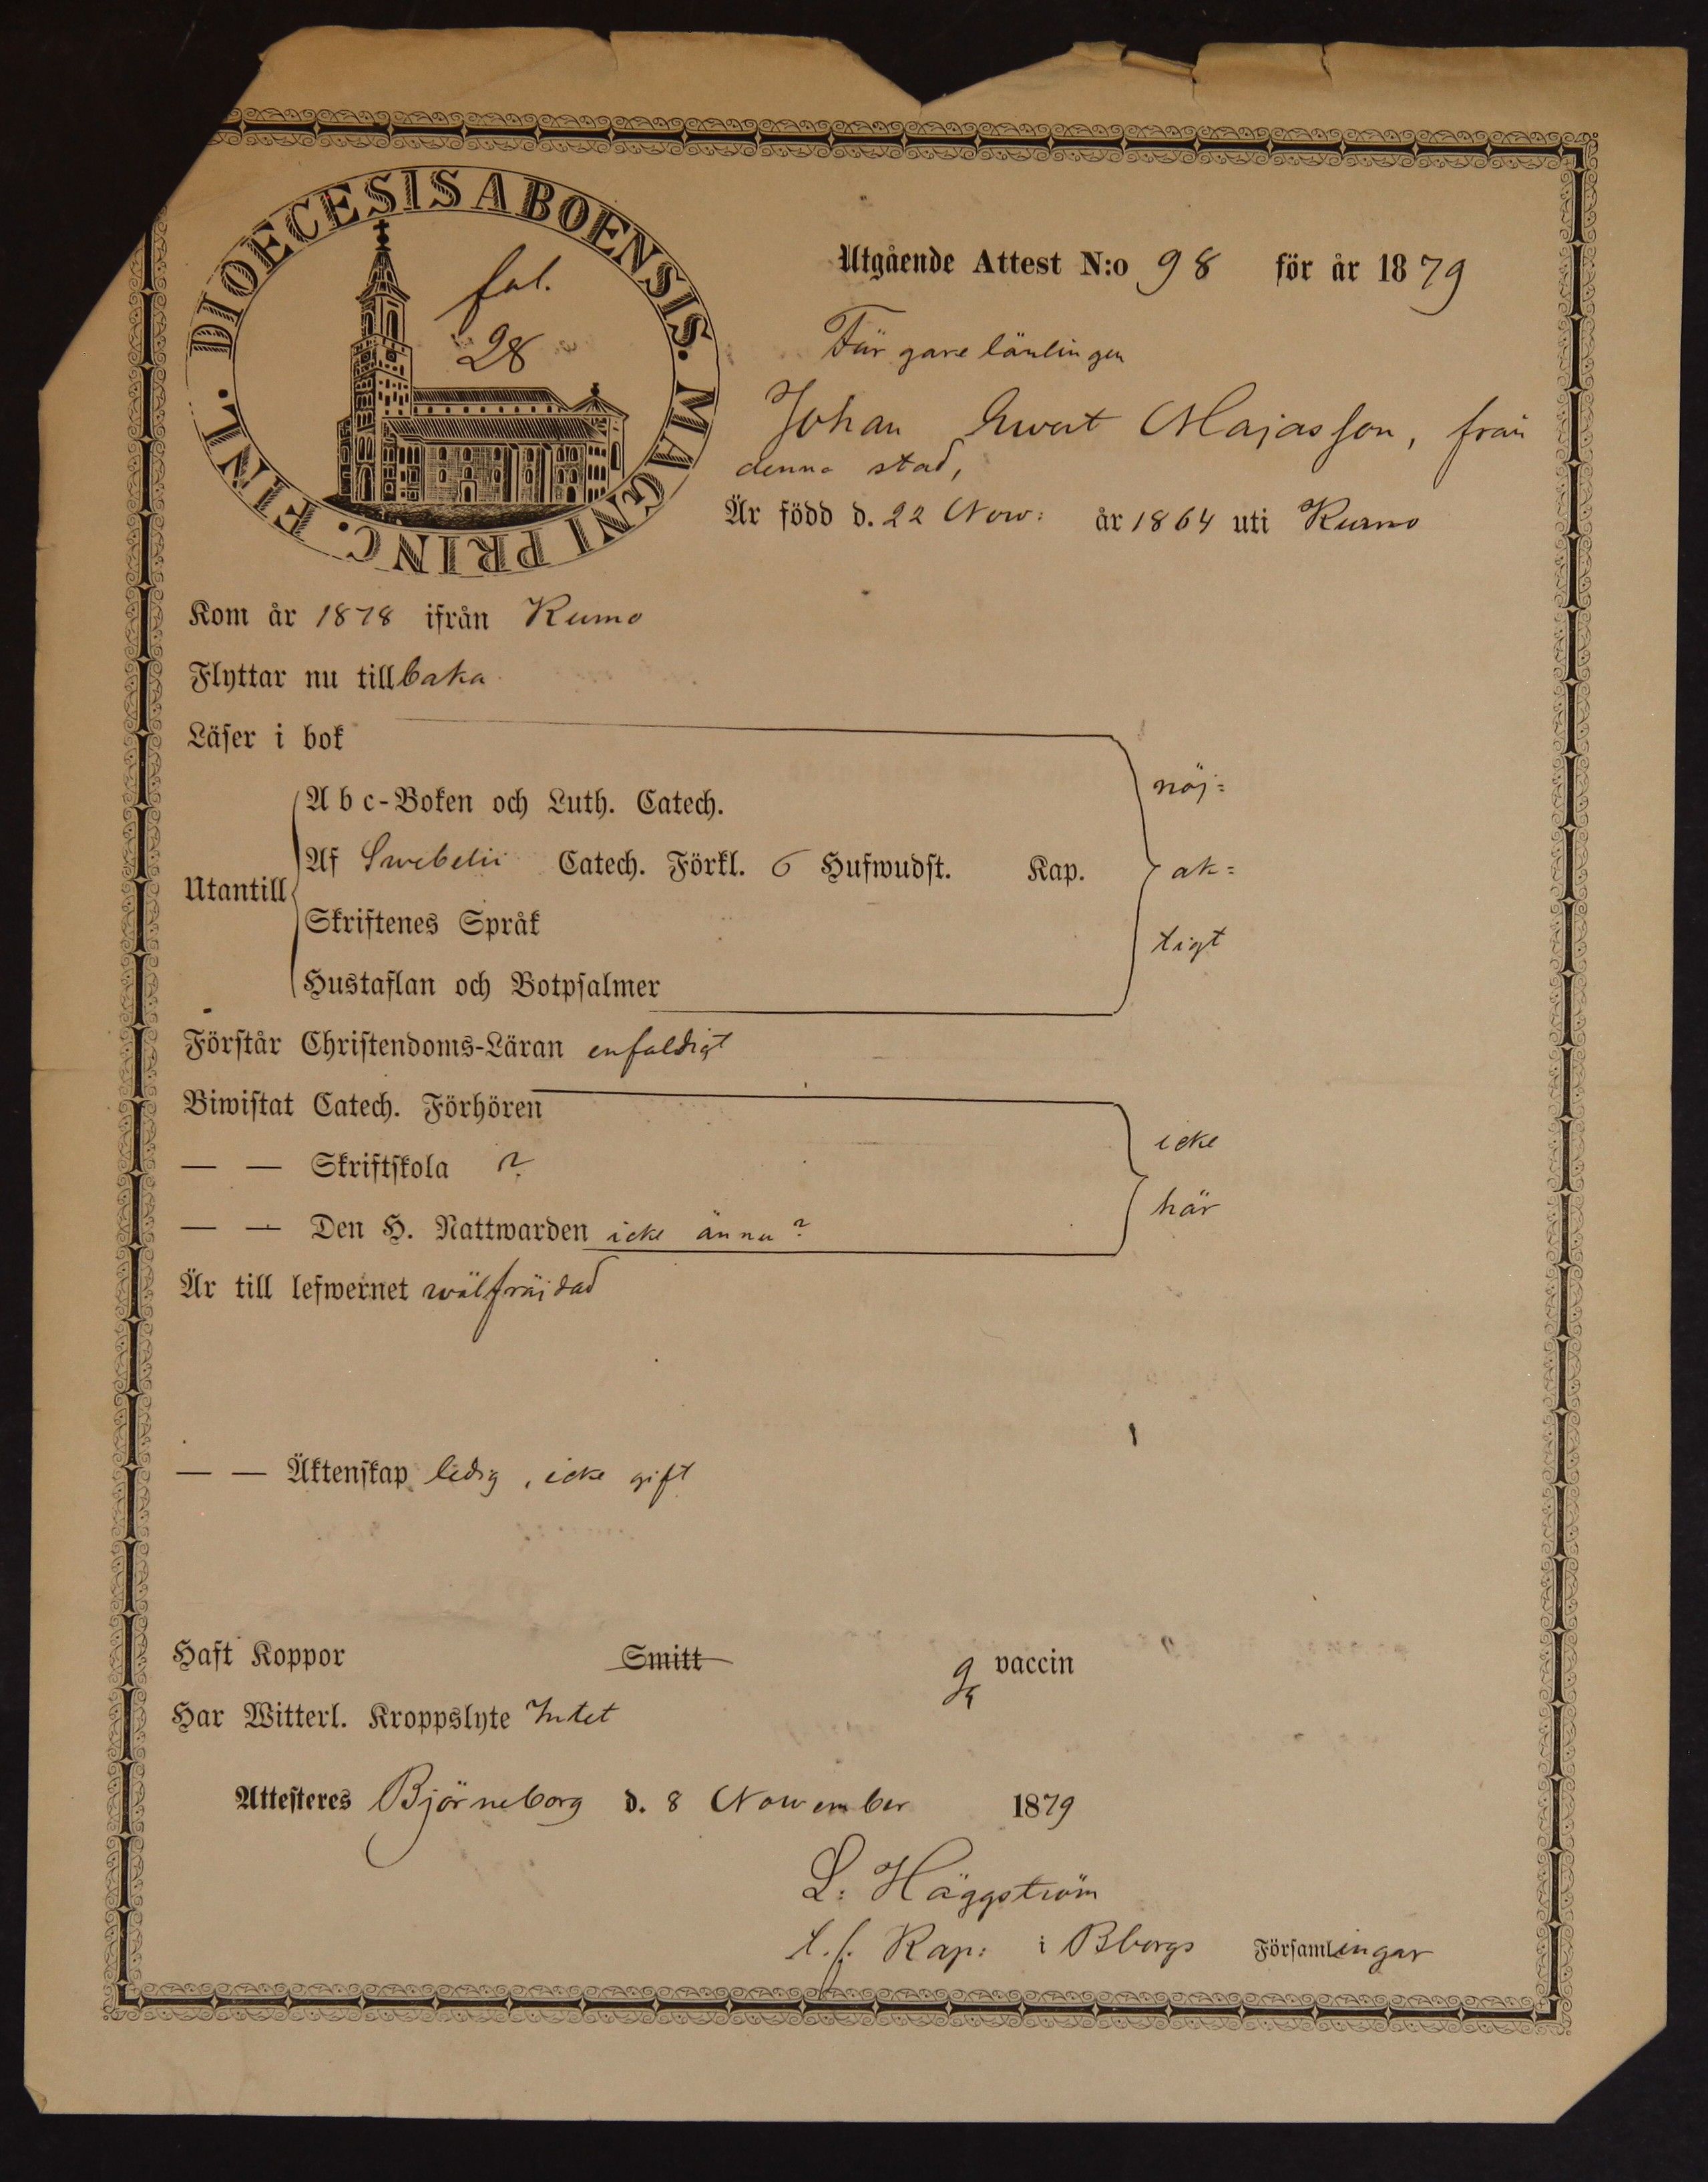 DIOECESIS ABOENSIS. MAGNI PRINC. FINL.
fol.
28
Utgående Attest N:o 98 för år 1879
Färgarelärlingen
Johan Ewert Majasson, från
denna stad,
Är född d. 22 Now: år 1864 uti Kumo
Kom år 1878 ifrån Kumo
Flyttar nu tillbaka
Läser i bok
nöj=
Abc-Boken och Luth. Catech.
Utantill
Af Swebelii Catech. Förkl. 6 Hufwudst. Kap.
ak=
Skriftenes Språk
tigt
Hustaflan och Botpsalmer
Förstår Christendoms-Läran enfaldigt
Biwistat Catech. Förhören
icke
— — Skriftskola ?
här
— — Den H. Nattwarden icke ännu?
Är till lefwernet wälfräjdad
— — Äktenskap ledig, icke gift
Haft Koppor Smitt vaccin
Har Witterl. Kroppslyte Intet
Attesteres Björneborg d. 8 November 1879
L: Häggström
t.f. Kap: i Bborgs Församlingar